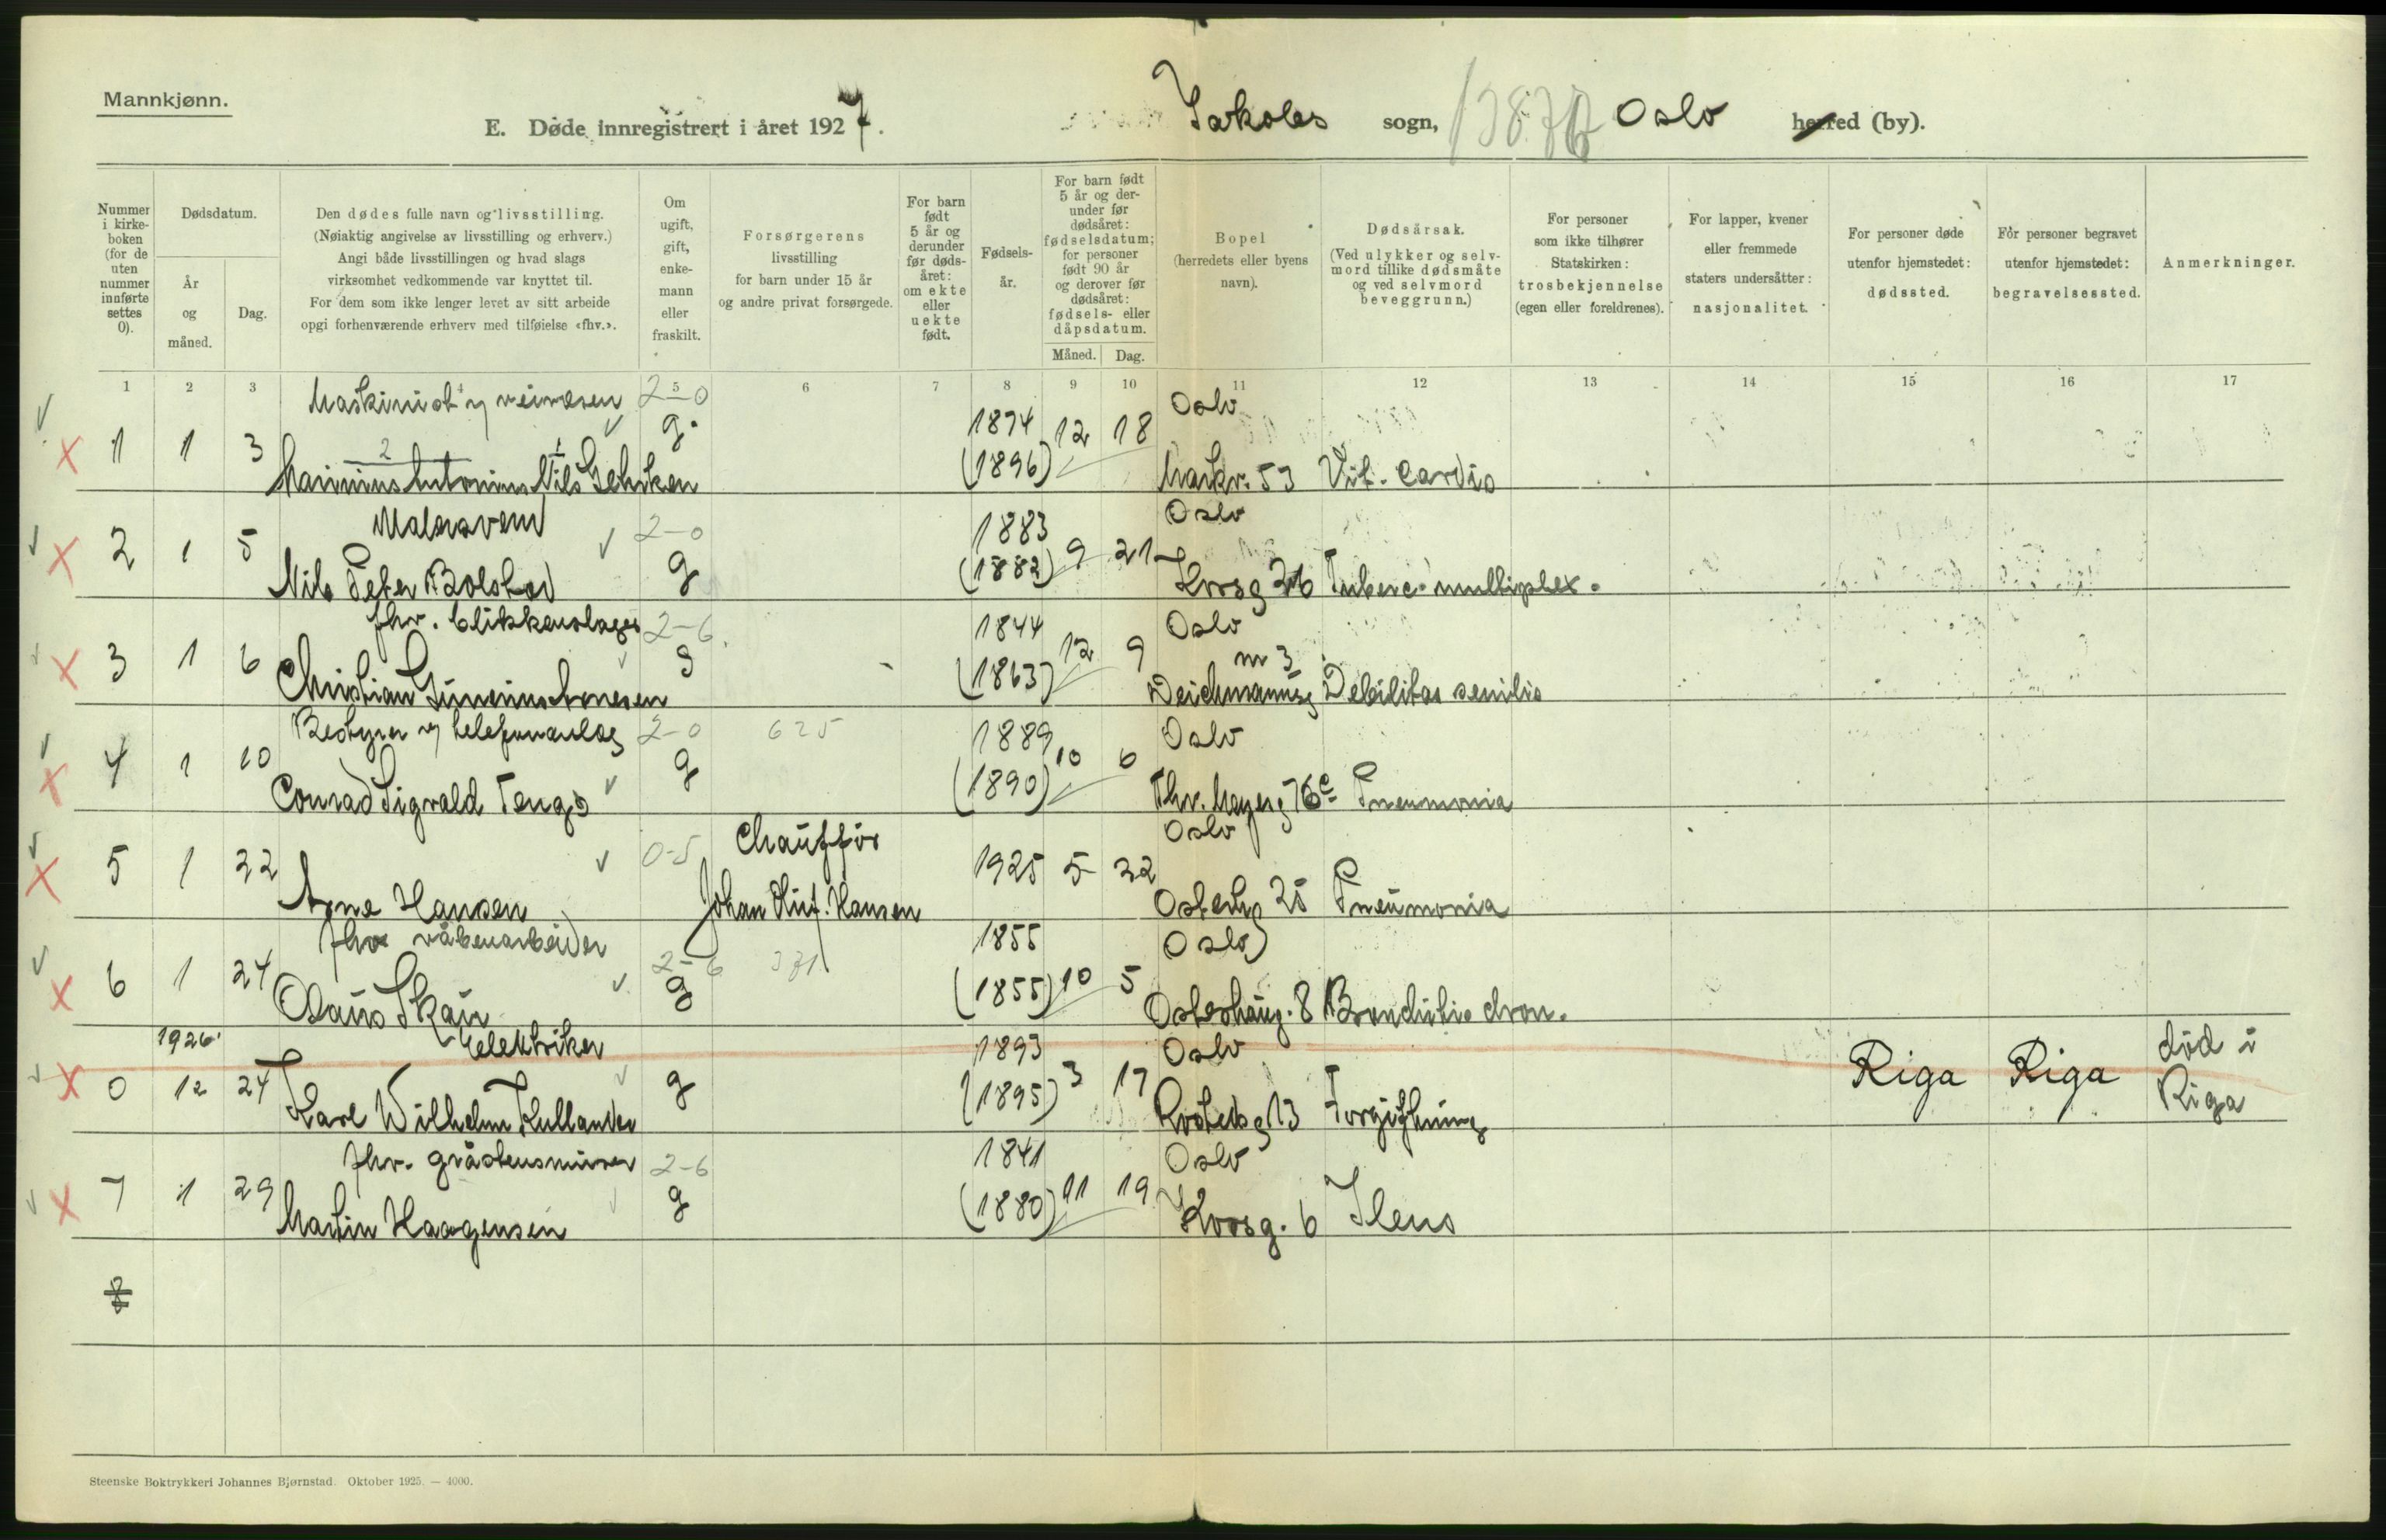 Mannkjønn.
E. Døde innregistrert i året 1927. Jakobs sogn, Oslo herred (by).
Nummer i kirkeboken (for de uten nummer innførte settes 0).
Dødsdatum.
År og måned.
Dag.
Den dødes fulle navn og livsstilling.
(Nøiaktig angivelse av livsstilling og erhverv.)
Angi både livsstillingen og hvad slags
virksomhet vedkommende var knyttet til.
For dem som ikke lenger levet av sitt arbeide
opgi forhenværende erhverv med tilføielse «fhv.».
Om ugift, gift, enkemann eller fraskilt.
Forsørgerens
livsstilling
for barn under 15 år
og andre privat forsørgede.
For barn født 5 år og derunder før dødsåret: om ekte eller uekte født.
Fødselsår.
For barn født 5 år og derunder før dødsåret: fødselsdatum; for personer født 90 år og derover før dødsåret: fødsels- eller dåpsdatum.
Måned. Dag.
Bopel
(herredets eller byens
navn).
Dødsårsak.
(Ved ulykker og selvmord tillike dødsmåte og ved selvmord beveggrunn.)
For personer
som ikke tilhører
Statskirken:
trosbekjennelse
(egen eller foreldrenes).
For lapper, kvener
eller fremmede
staters undersåtter:
nasjonalitet.
For personer døde
utenfor hjemstedet:
dødssted.
For personer begravet
utenfor hjemstedet:
begravelsessted.
Anmerkninger.
1 2 3 5 6 7 8 9 10 11 12 13 14 15 16 17
Maskinist v veivesen 2-0 1874 Oslo
1 1 3 g. (1896) 12 18
Marinius Antonius Nils Gehrken Markv. 53 Vit. cordis
Malersvend 2-0 1883 Oslo
2 1 5 g (1882) 9 21
Nils Peter Bolstad Korsg 26 Tuberc. multiplex.
fhv. blikkenslager 2-6 1844 Oslo
3 1 6 g (1863) 12 9 nr 3
Christian Arnesen Deichmannsg Debilitas senilis
Bestyrer v telefonanlæg 2-0 625 1889 Oslo
4 1 10 g (1890) 10 6
Conrad Sigvald Tengs Thv. Meyersg 76c Pneumonia
Chauffør Oslo
5 1 22 0-5 1925 5 22
Arne Hansen Johan Hansen Osterhg 25 Pneumonia
fhv våbenarbeider 1855 Oslo
6 1 24 2-6 g 371 (1855) 10 5
Olaus Skau Osterhaug. 8 Bronchitis chron.
1926 elektriker 1893 Oslo
0 12 24 g (1895) 3 17 Riga Riga död i Riga
Karl Wilhelm Kullander Rostedsg 13 Forgiftning
fhv. gråstensmurer 2-6 1841 Oslo
7 1 29 g (1880) 11 19
Martin Haagensen Korsg. 6 Ileus
8
Steenske Boktrykkeri Johannes Bjørnstad. Oktober 1925. — 4000.